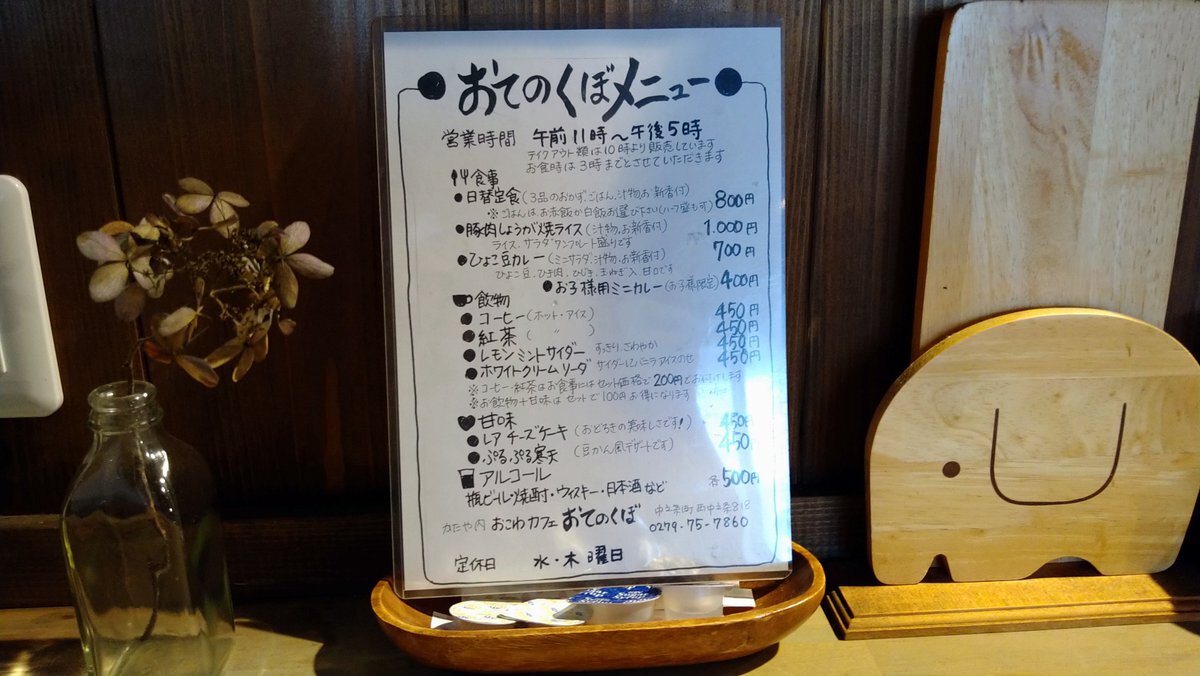 おてのくぼメニュー
営業時間 午前11時〜午後5時
テイクアウト類は10時より販売しています
お食時は3時までとさせていただきます
食事
●日替定食(3品のおかず、ごはん、汁物、お新香付) 800円
※ごはんは、お赤飯か白飯お選び下さい(ハーフ盛もす)
●豚肉しょうが焼ライス(汁物、お新香付) 1.000円
ライス、サラダワンプレート盛りです
●ひよこ豆カレー(ミニサラダ、汁物、お新香付) 700円
ひよこ豆、ひき肉、ひじき、玉ねぎ入、甘口です
●お子様用ミニカレー(お子様限定) 400円
飲物
●コーヒー(ホット・アイス) 450円
●紅茶( 〃 ) 450円
●レモンミントサイダー すっきり、さわやか 450円
●ホワイトクリームソーダ サイダーにバニラアイスのせ 450円
※コーヒー・紅茶はお食事にはセット価格で200円でお付けします
※お飲物+甘味はセットで100円お得になります
♥甘味 450円
●レアチーズケーキ(おどろきの美味しさです!) 450円
●ぷるぷる寒天(豆かん風デザートです)
アルコール 各500円
瓶ビール・焼酎・ウィスキー・日本酒など
かたや内 おこわカフェ おてのくぼ
中之条町西中之条818
0279-75-7860
定休日 水・木曜日